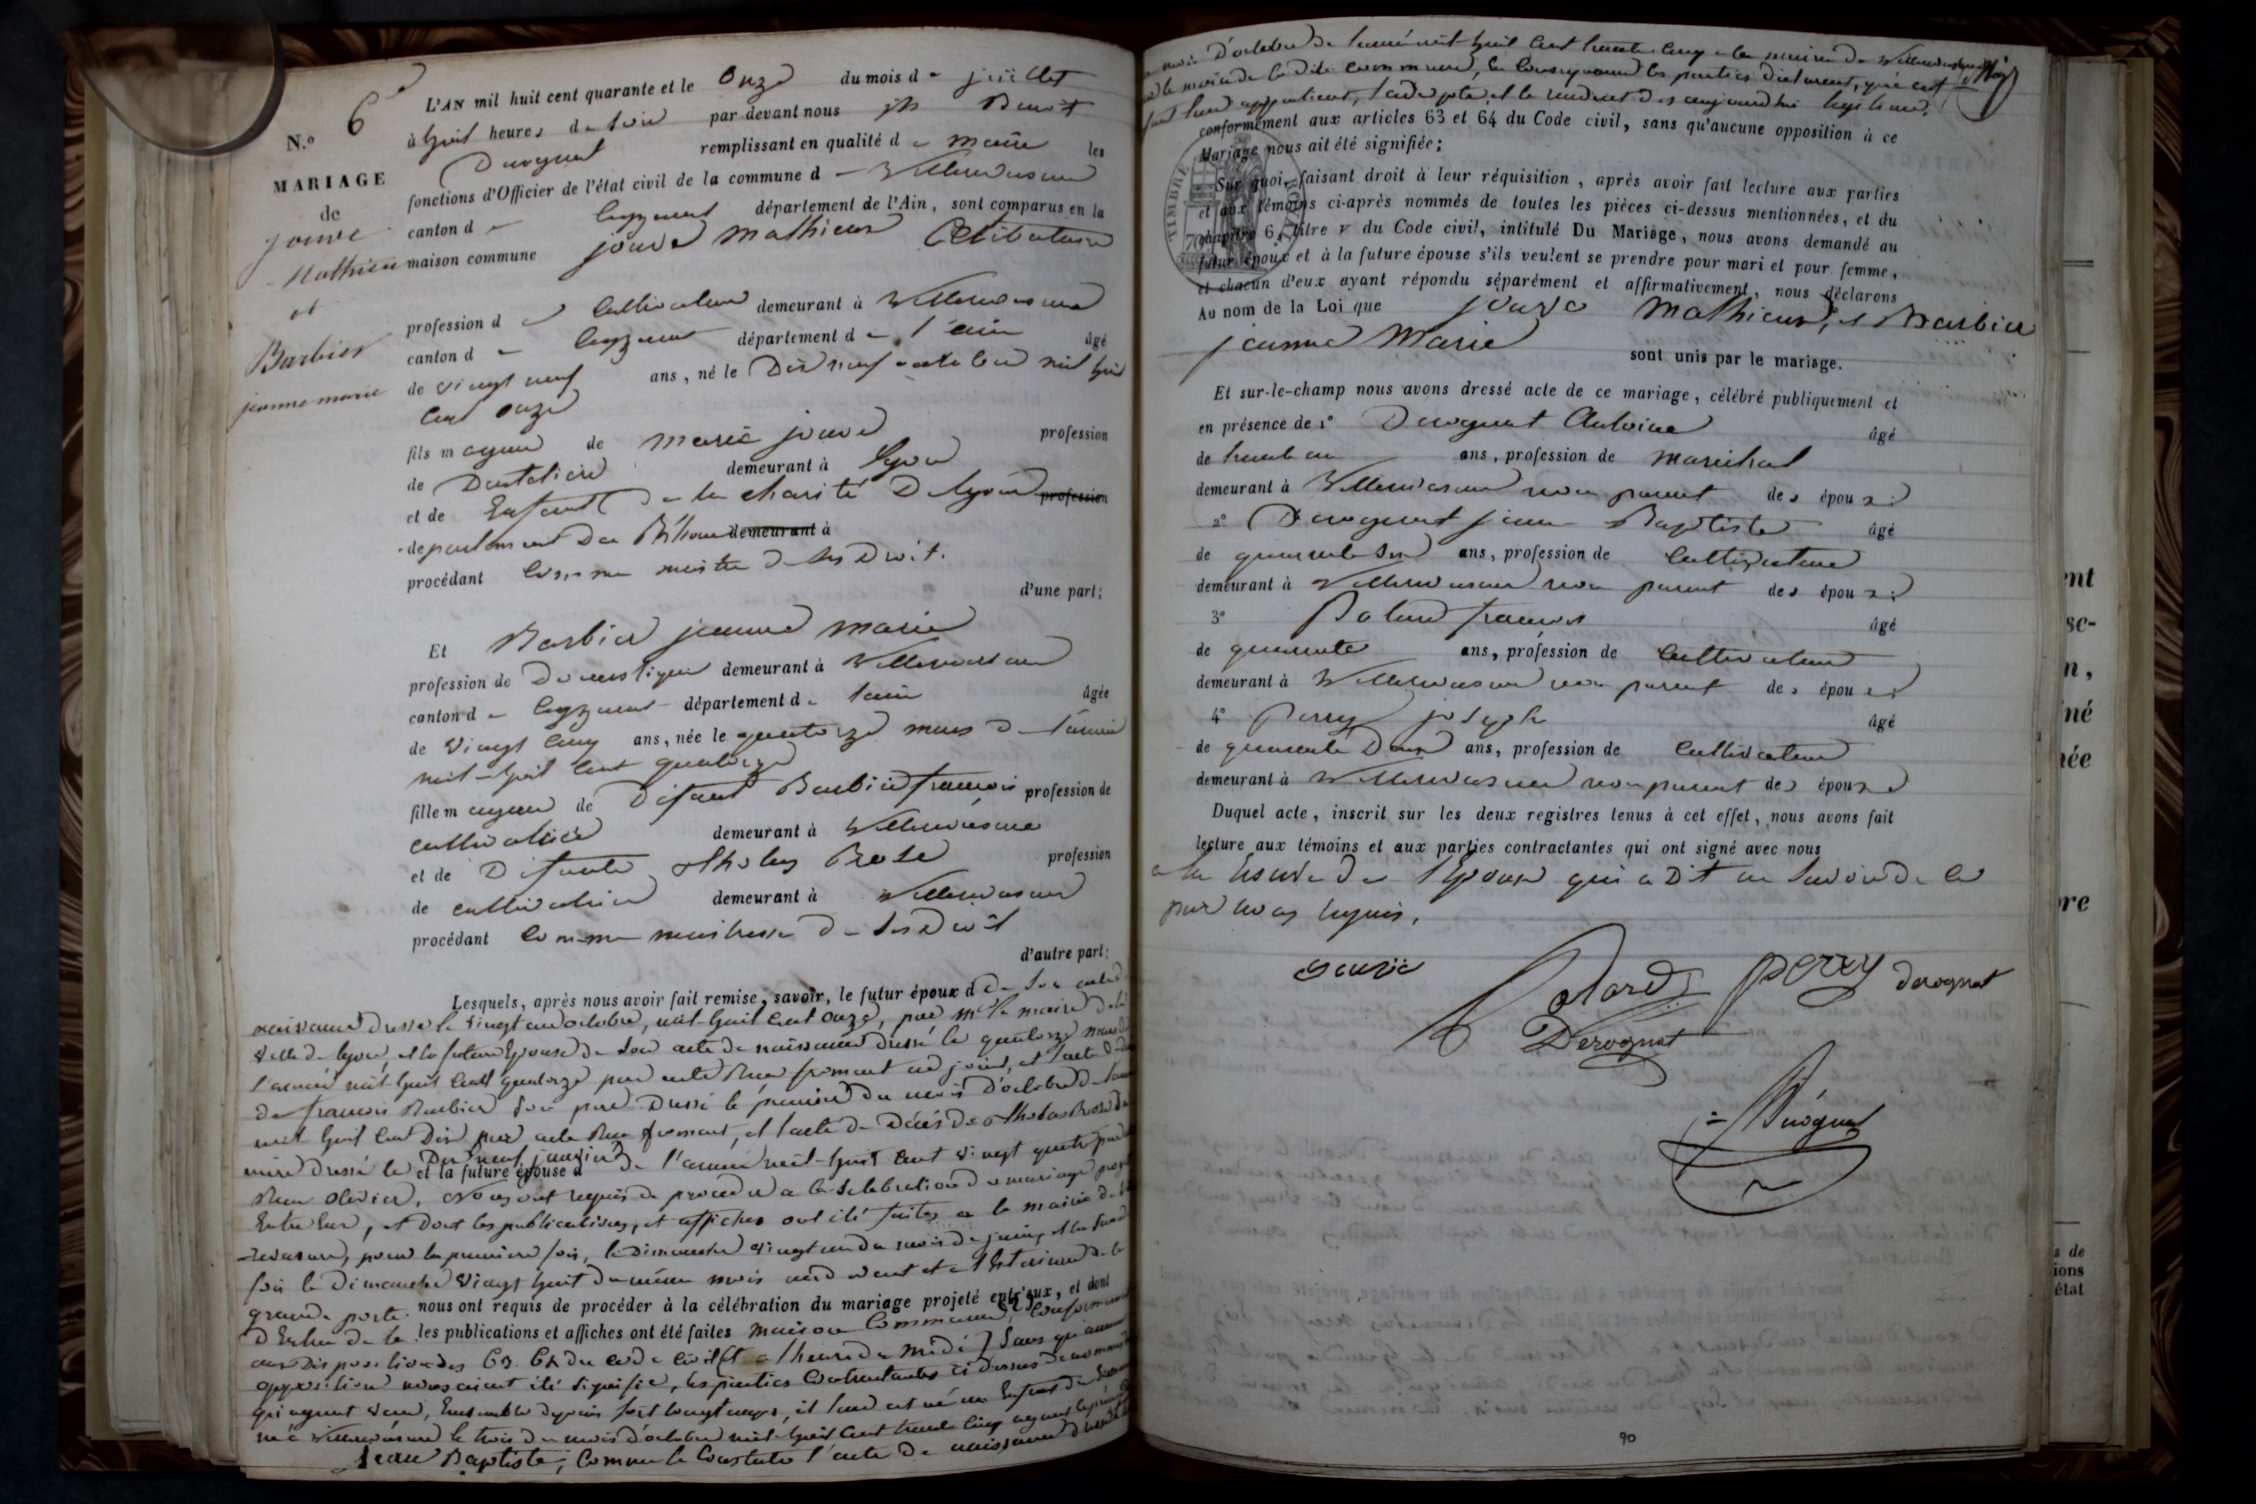 N.º 6
MARIAGE
de
jouve
Mathieu
et
Barbier
jeanne marie
L'AN mil huit cent quarante et le onze du mois de juillet
à huit heures du soir par devant nous
Derognat remplissant en qualité de maire les
fonctions d'Officier de l'état civil de la commune de Villereversure
canton de Ceyzeriat département de l'Ain, sont comparus en la
maison commune jouve Mathieu Celibataire
profession de Cultivateur demeurant à Villereversure
canton de Ceyzeriat département de l'ain âgé
de vingt neuf ans, né le Dix neuf octobre mil huit
cent onze
fils majeur de marie jouve profession
de Dentelière demeurant à lyon
et de Enfant de la charité De lyon profession
departement du Rhône demeurant à
procédant comme maitre de ses Droit.
d'une part;
Et Barbier jeanne marie
profession de Domestique demeurant à Villereversure
canton de Ceyzeriat département de l'ain âgée
de vingt cinq ans, née le quatorze mars de l'année
mil huit cent quatorze
fille majeure de Défunt Barbier françois profession de
cultivateur demeurant à Villereversure
et de Défunte Rose profession
de cultivatrice demeurant à Villereversure
procédant comme maitresse de ses Droit
d'autre part;
Lesquels, après nous avoir fait remise, savoir, le futur époux d de son acte de
naissance dressé le vingt un octobre, mil huit cent onze, par Mr le maire de la
ville de lyon, et la future Epouse de son acte de naissance dressé le quatorze mars de
l'année mil huit cent quatorze par acte froment ci joint, et l'acte de
de françois Barbier son père Dressé le premier du mois d'octobre de
mil huit cent Dix par acte froment, et l'acte de Décès de Rose
mère dressé le Dix neuf janvier de l'année mil huit cent vingt quatre
et la future épouse d
olivier, Nous ont requis de proceder a la celebration du mariage
Entre Eux, et dont les publications, et affiches ont été faites a la mairie de
reversure, pour la première fois, le Dimanche vingt un du mois de juin, et la
fois le Dimanche vingt huit du même mois
grande porte nous ont requis de procéder à la célébration du mariage projeté entr'eux, et dont
d'Entrée de la les publications et affiches ont été faites maison Commune,
aux Dispositions des 63. 64 du code civil (et a l'heure de midi) Sans qu'aucune
opposition nous aient été signifié, les parties Contractantes ci dessus
qui ayant vécu, Ensemble depuis fort longtemps, il leur est né un Enfant
né à Villereversure le trois du mois d'octobre mil huit cent trente cinq
Jean Baptiste, Comme le Constate l'acte de naissance
mois D'octobre de l'année mil huit cent trente cinq a la mairie de Villereversure
le maire de la dite commune, en Consequence les parties Déclarent, que cet
Enfant leur appartient,
conformément aux articles 63 et 64 du Code civil, sans qu'aucune opposition à ce
Mariage nous ait été signifiée;
TIMBRE ROYAL
Sur quoi, faisant droit à leur réquisition, après avoir fait lecture aux parties
et aux témoins ci-après nommés de toutes les pièces ci-dessus mentionnées, et du
chapitre 6, titre v du Code civil, intitulé Du Mariage, nous avons demandé au
futur époux et à la future épouse s'ils veulent se prendre pour mari et pour femme,
et chacun d'eux ayant répondu séparément et affirmativement, nous déclarons
Au nom de la Loi que jouve Mathieu, et Barbier
jeanne Marie sont unis par le mariage.
Et sur-le-champ nous avons dressé acte de ce mariage, célébré publiquement et
en présence de 1º Derognat Antoine âgé
de trente ans, profession de marechal
demeurant à Villereversure non parent des époux;
2º Derognat jean Baptiste âgé
de quarante ans, profession de Cultivateur
demeurant à Villereversure non parent des époux;
3º Bolard françois âgé
de quarante ans, profession de Cultivateur
demeurant à Villereversure non parent des époux;
4º Perry joseph âgé
de quarante Deux ans, profession de Cultivateur
demeurant à Villereversure non parent des époux
Duquel acte, inscrit sur les deux registres tenus à cet effet, nous avons fait
lecture aux témoins et aux parties contractantes qui ont signé avec nous
a la reserve de l'Epouse qui a Dit ne savoir de ce
par nous requis.
jouve Bolard perry derognat
Derognat
Derognat
90